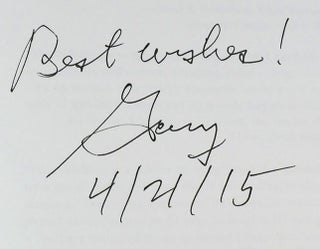 Best wishes!
Gary
4/21/15